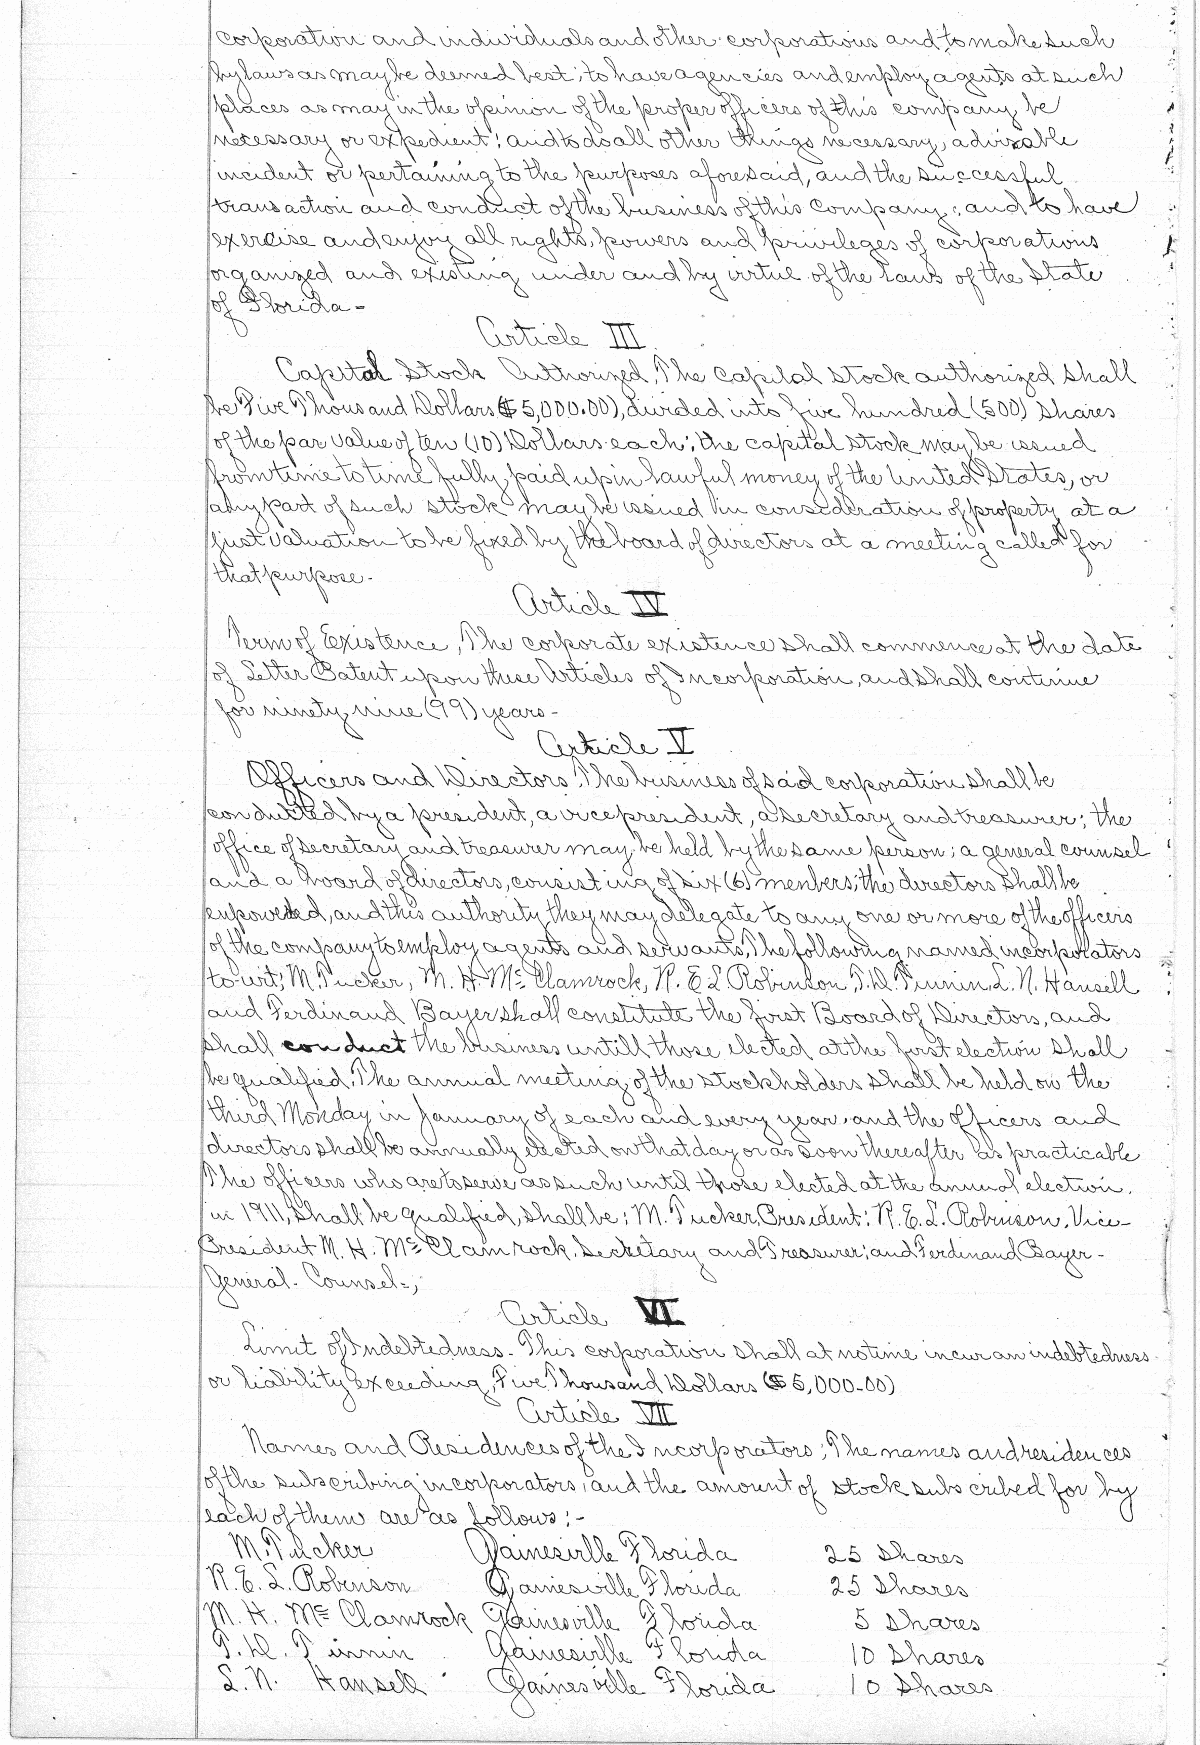 corporation and individuals and other corporations and to make such
bylaws as may be deemed best; to have agencies and employ agents at such
places as may in the opinion of the proper officers of this company, be
necessary or expedient; and to do all other things necessary, advisable
incident or pertaining to the purposes aforesaid, and the successful
transaction and conduct of the business of this company; and to have
exercise and enjoy all rights, powers and privileges of corporations
organized and existing under and by virtue of the Laws of the State
of Florida-
Article III
Capital Stock Authorized. The capital stock authorized shall
be Five Thousand Dollars ($5,000.00), divided into five hundred (500) shares
of the par value of ten (10) Dollars each; the capital stock may be issued
from time to time fully paid up in lawful money of the United States, or
any part of such stock may be issued in consideration of property at a
just valuation to be fixed by the board of directors at a meeting called for
that purpose-
Article IV
Term of Existence, The corporate existence shall commence at the date
of Letter Patent upon these Articles of Incorporation, and shall continue
for ninety nine (99) years-
Article V
Officers and Directors. The business of said corporation shall be
conducted by a president, a vice president, a secretary and treasurer; the
office of secretary and treasurer may be held by the same person; a general counsel
and a board of directors, consisting of six (6) menbers; the directors shall be
enpowered, and this authority they may delegate to any one or more of the officers
of the company to employ agents and servants. The following named incorporators
to-wit; M. Tucker, M. H. Mc Clamrock, R. E. L Robinson, T. D. Tinnin, L. N. Hansell
and Ferdinand Bayer shall constitute the first Board of Directors, and
shall conduct the business untill those elected at the first election shall
be qualified. The annual meeting of the stockholders shall be held on the
third Monday in January of each and every year, and the officers and
directors shall be annually elected on that day or as soon thereafter as practicable
The officers who are to serve as such until those elected at the annual election.
in 1911, shall be qualified, shall be; M. Tucker, President; R. E. L. Robinson, Vice-
President M. H. Mc Clamrock, Secretary and Treasurer; and Ferdinand Bayer-
General. Counsel-;
Article VI
Limit of Indebtedness- This corporation shall at no time incur an indebtedness
or liability exceeding, Five Thousand Dollars ($5,000.00)
Article VII
Names and Residences of the Incorporators; The names and residences
of the subscribing incorporators, and the amount of stock subscribed for by
each of them are as follows;-
M. Tucker Gainesville Florida 25 Shares
R. E. L. Robinson Gainesville Florida 25 Shares
M. H. Mc Clamrock Gainesville Florida 5 Shares
T. D. Tinnin Gainesville Florida 10 Shares
L. N. Hansell Gainesville Florida 10 Shares